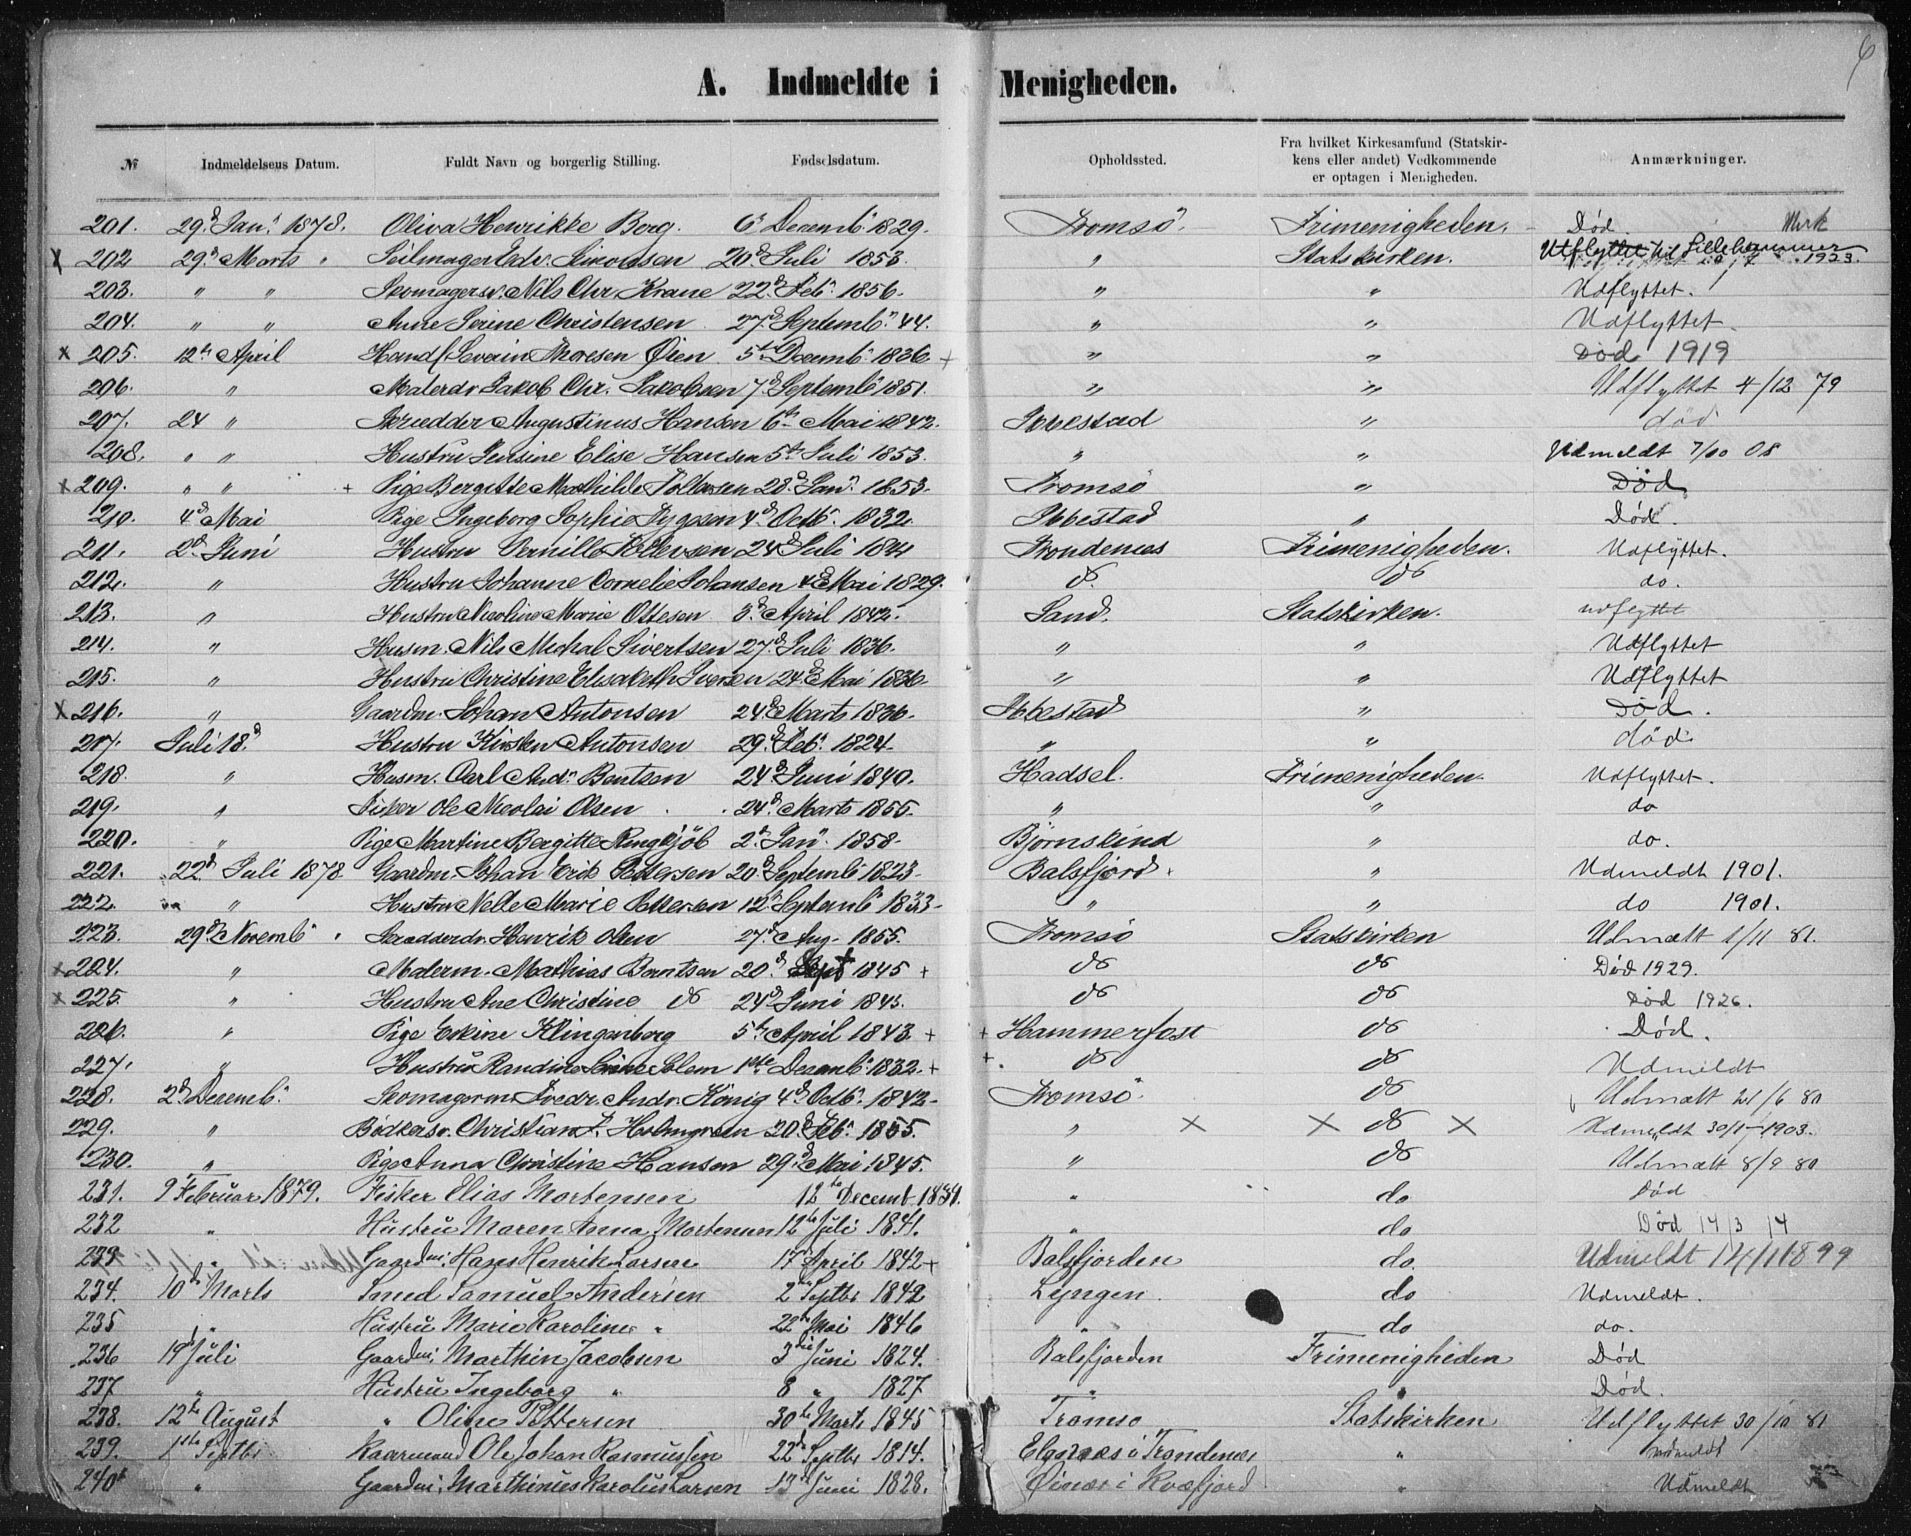 6
A. Indmeldte i Menigheden.
№ Indmeldelsens Datum. Fuldt Navn og borgerlig Stilling. Fødselsdatum. Opholdssted. Fra hvilket Kirkesamfund (Statskirkens eller andet) Vedkommende er optagen i Menigheden. Anmærkninger.
201. 29d Jan. 1878. Oliva Henrikke Borg. 6 Decemb. 1829. Tromsö. Frimenigheden. Død.
x 202 29d Marts " Seilmager Edv. Simonsen 20d Juli 1853 " Statskirken. Utflyttet til Lillehammer 1923.
203. " " Skomagersv. Nils Chr. Krane 22d Feb. 1856. " " Udflyttet.
204. " " Anne Serine Christensen 27d Septemb. 44. " " Udflyttet.
x 205. 12te April Handf. Severin Thoresen Øien 5te Decemb. 1836 + " " Død 1919
206. " Malerdr. Jakob Chr. Jakobsen 7d Septemb. 1851. " " Udflyttet 4/12 79
207. 24 " Skrædder Augustinus Hansen 6te Mai 1842. Ibbestad " død
208. " " Hustru Jensine Elise Hansen 5te Juli 1853. " " Udmeldt 7/10 08
x 209. " " + Pige Bergitte Mathilde 28d Jan. 1853. Tromsö " Død
210. 4d Mai Pige Ingeborg Sophie 4d Octb. 1832. Ibbestad " Død.
211. 2d Juni Hustru Pernille 24d Juli Trondenes Frimenigheden. Udflyttet.
212. " Hustru Johanne Cornelie Johansen 4d Mai 1829. do. do do.
213. " Hustru Nicoline Marie Ottesen 3d April 1842. Sand. Statskirken. udflyttet
214. " Husm. Nils Michal Sivertsen 27d Juli 1836. " " Udflyttet
215. " Hustru Christine Elisabeth 24d Mai 1836 " " Udflyttet
x 216. " Gaardm. Johan Antonsen 24d Marts 1836. Ibbestad " Død.
217. Juli 18d Hustru Kirsten Antonsen 29d Feb. 1824. " " død
218. " Husm. Carl Andr. Bentsen 24d Juni 1840. Hadsel. Frimenigheden. Udflyttet.
219. " Fisker Ole Nicolai Olsen 24d Marts 1855. " " do
220. " Pige Martine Bergitte Ringkjöb 2d Jan. 1858. Bjørnskind " do.
221. 22d Juli 1878 Gaardm. Johan Erik Pettersen 20d Septemb. 1823. Balsfjord. " Udmeldt 1901.
222. " Hustru Nelle Marie Pettersen 12te Septemb. 1833 " " do 1901.
223. 29d Novemb. " Skrædderdr. Henrik Olsen 27d Aug. 1855. Tromsö Statskirken Udmæltt 1/11 81.
x 224. " Malerm. Mathias Berntsen 20d Sept 1845 + do do Død 1929.
x 225. " Hustru Ane Christine do 24d Juni 1843. do do Død 1926.
226. " Pige Eskine Klingenberg 5te April 1843 + + Hammerfest do Død.
227. " Hustru Randine Solem 1ste Decemb. 1832. + + do do Udmeldt
228. 2d Decemb. Skomagerm. Fredr. Andr. König 4d Octb. 1842. Tromsö. do Udmæltt 21/6 80
229. " Bödkersv. Christian F. Holmgreen 20d Feb. 1855. " x x do x Udmeldt 30/1 1903.
230. " Pige Anna Christine Hansen 29d Mai 1845. " do Udmæltt 8/9 80
231. 9 Februar 1879. Fisker Elias Mortensen 12te Decemb. " do Død
232 " Hustru Maren Anna Mortensen 12te Juli 1841. " do Død 14/3 14
233 " Gaardm. Hans Henrik Larsen 17 April 1842 + Balsfjorden do. Udmeldt 14/11 1899
234. 10d Marts Smed Samuel Andersen 2 Septbr 1842 Lyngen. do Udmeldt.
235 " Hustru Marie Karoline " 22de Mai 1846 " do do.
236 19d Juli Gaardm. Marthin Jacobsen 3die Juni 1824. Balsfjorden Frimenigheden Død
237 " Hustru Ingeborg " 8 " 1827 " " Død.
238. 12te August " Oline Pettersen 30te Marts 1845 Tromsø Statskirken Udflyttet 30/10 81
239. 1ste Septbr Ole Johan Rasmussen 22de Septbr 1814. i Trondenæs " udmeldt
240 " Gaardm. Marthinus Karolius Larsen 13d Juni 1828. i Kvæfjord " Udmeldt